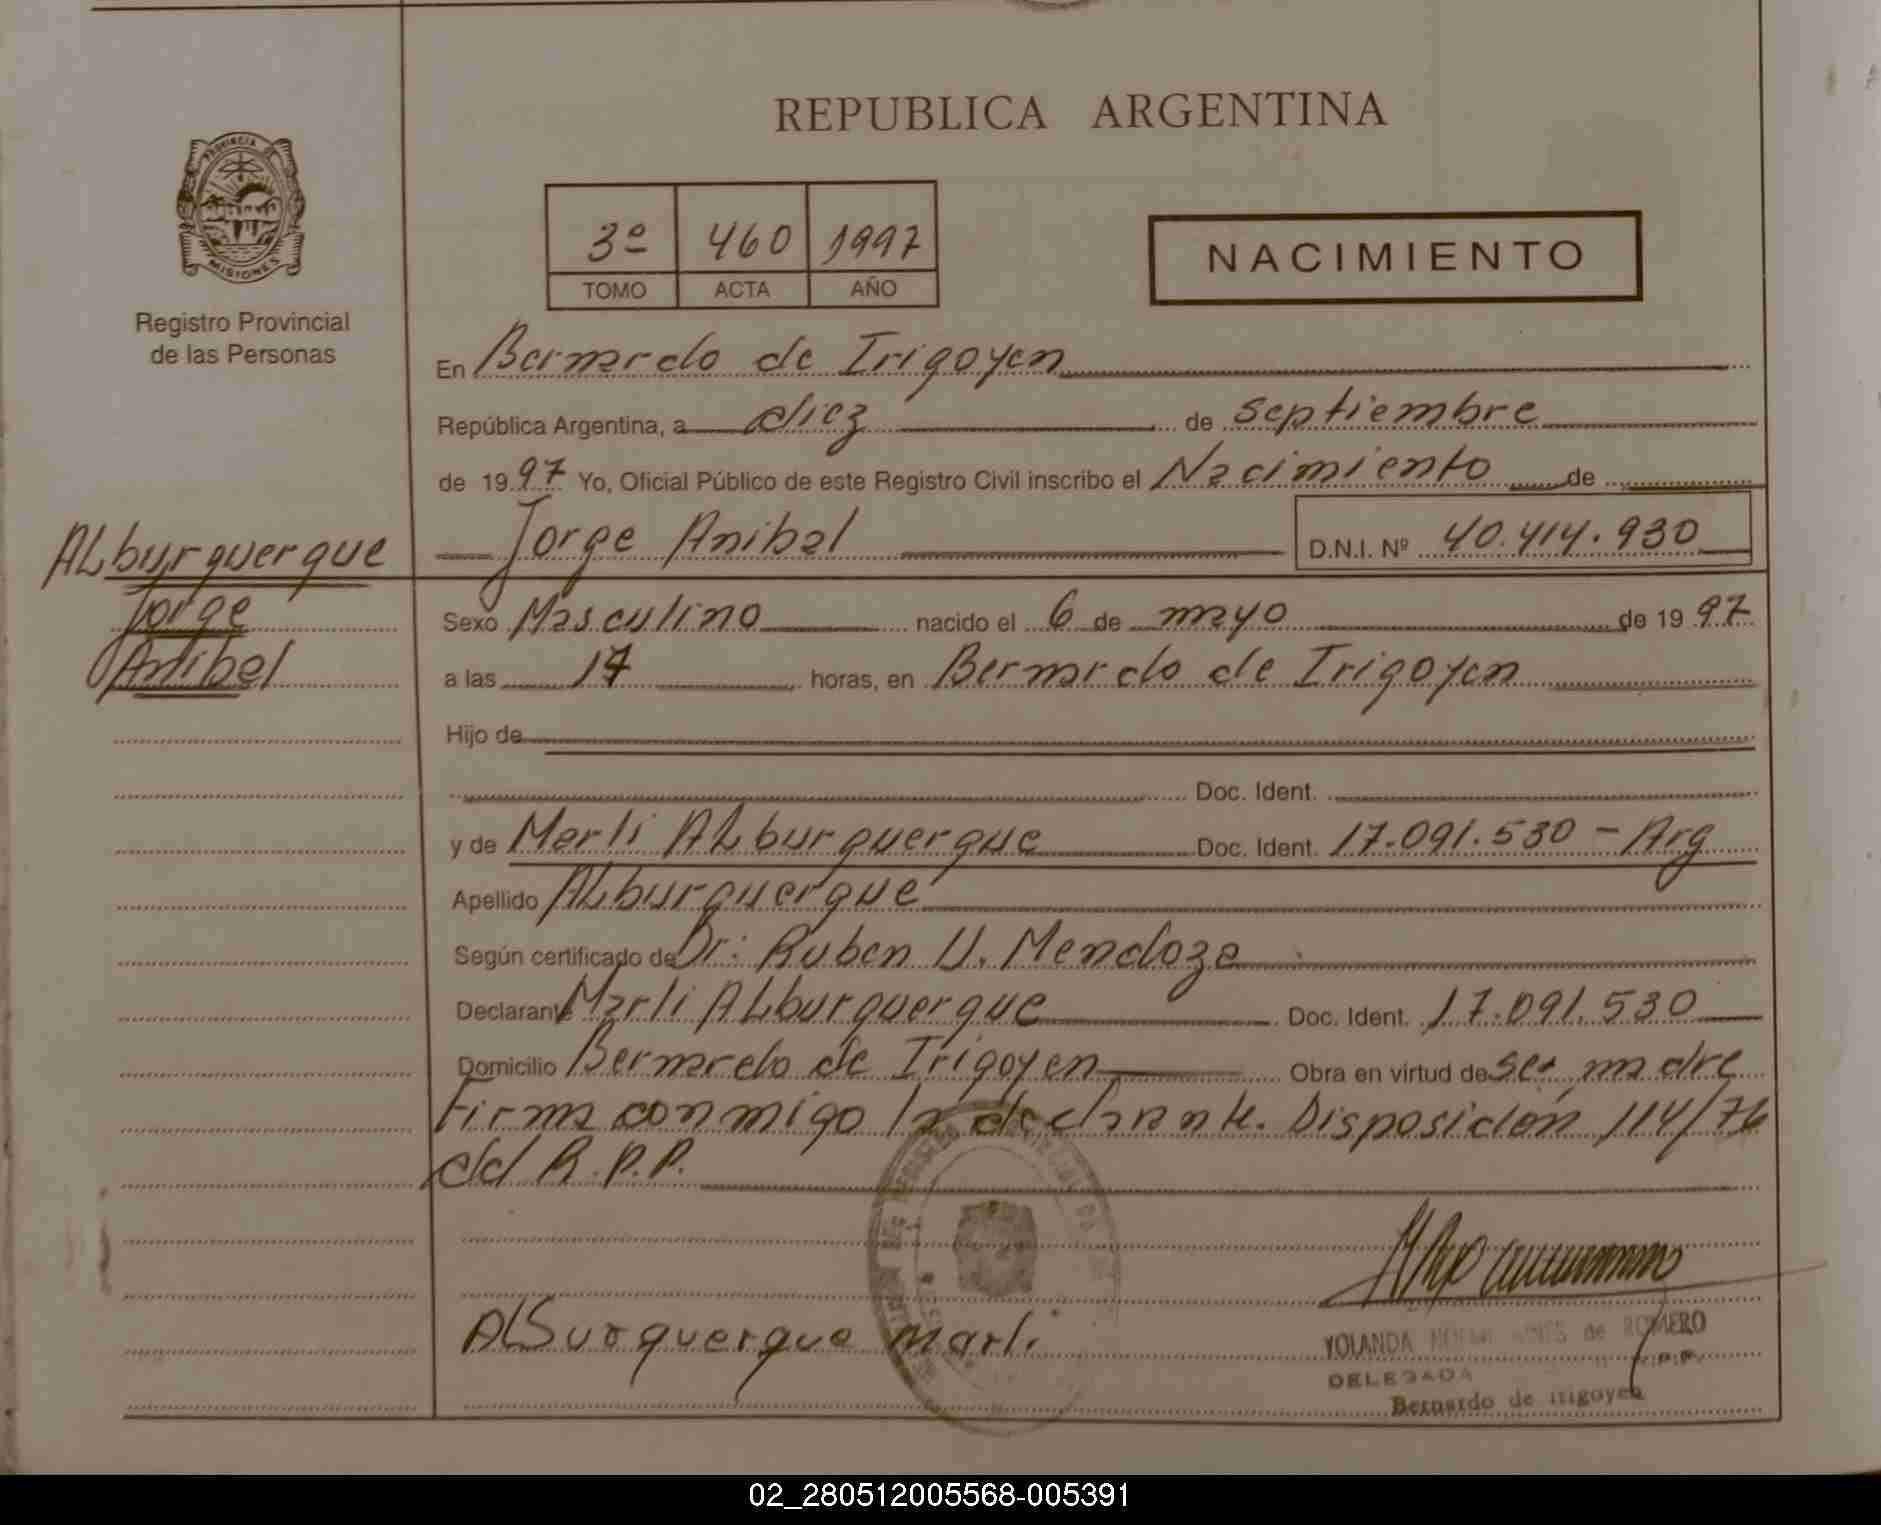 REPUBLICA ARGENTINA
PROVINCIA DE
MISIONES
Registro Provincial
de las Personas
3º 460 1997
TOMO ACTA AÑO
NACIMIENTO
En Bernardo de Irigoyen
República Argentina, a diez de septiembre
de 1997 Yo, Oficial Público de este Registro Civil inscribo el Nacimiento de
Jorge Anibal D.N.I. Nº 40.414.930
ALburquerque
Jorge
Anibal
Sexo Masculino nacido el 6 de mayo de 1997
a las 17 horas, en Bernardo de Irigoyen
Hijo de
Doc. Ident.
y de Marli ALburquerque Doc. Ident. 17.091.530 - Arg
Apellido ALburquerque
Según certificado de Dr: Ruben U. Mendoza
Declarante Marli ALburquerque Doc. Ident. 17.091.530
Domicilio Bernardo de Irigoyen Obra en virtud de ser madre
Firma conmigo la declarante. Disposición 114/76
del R.P.P.
ALburquerque Marli
YOLANDA de ROMERO
DELEGADA R.P.P.
Bernardo de Irigoyen
02_280512005568-005391